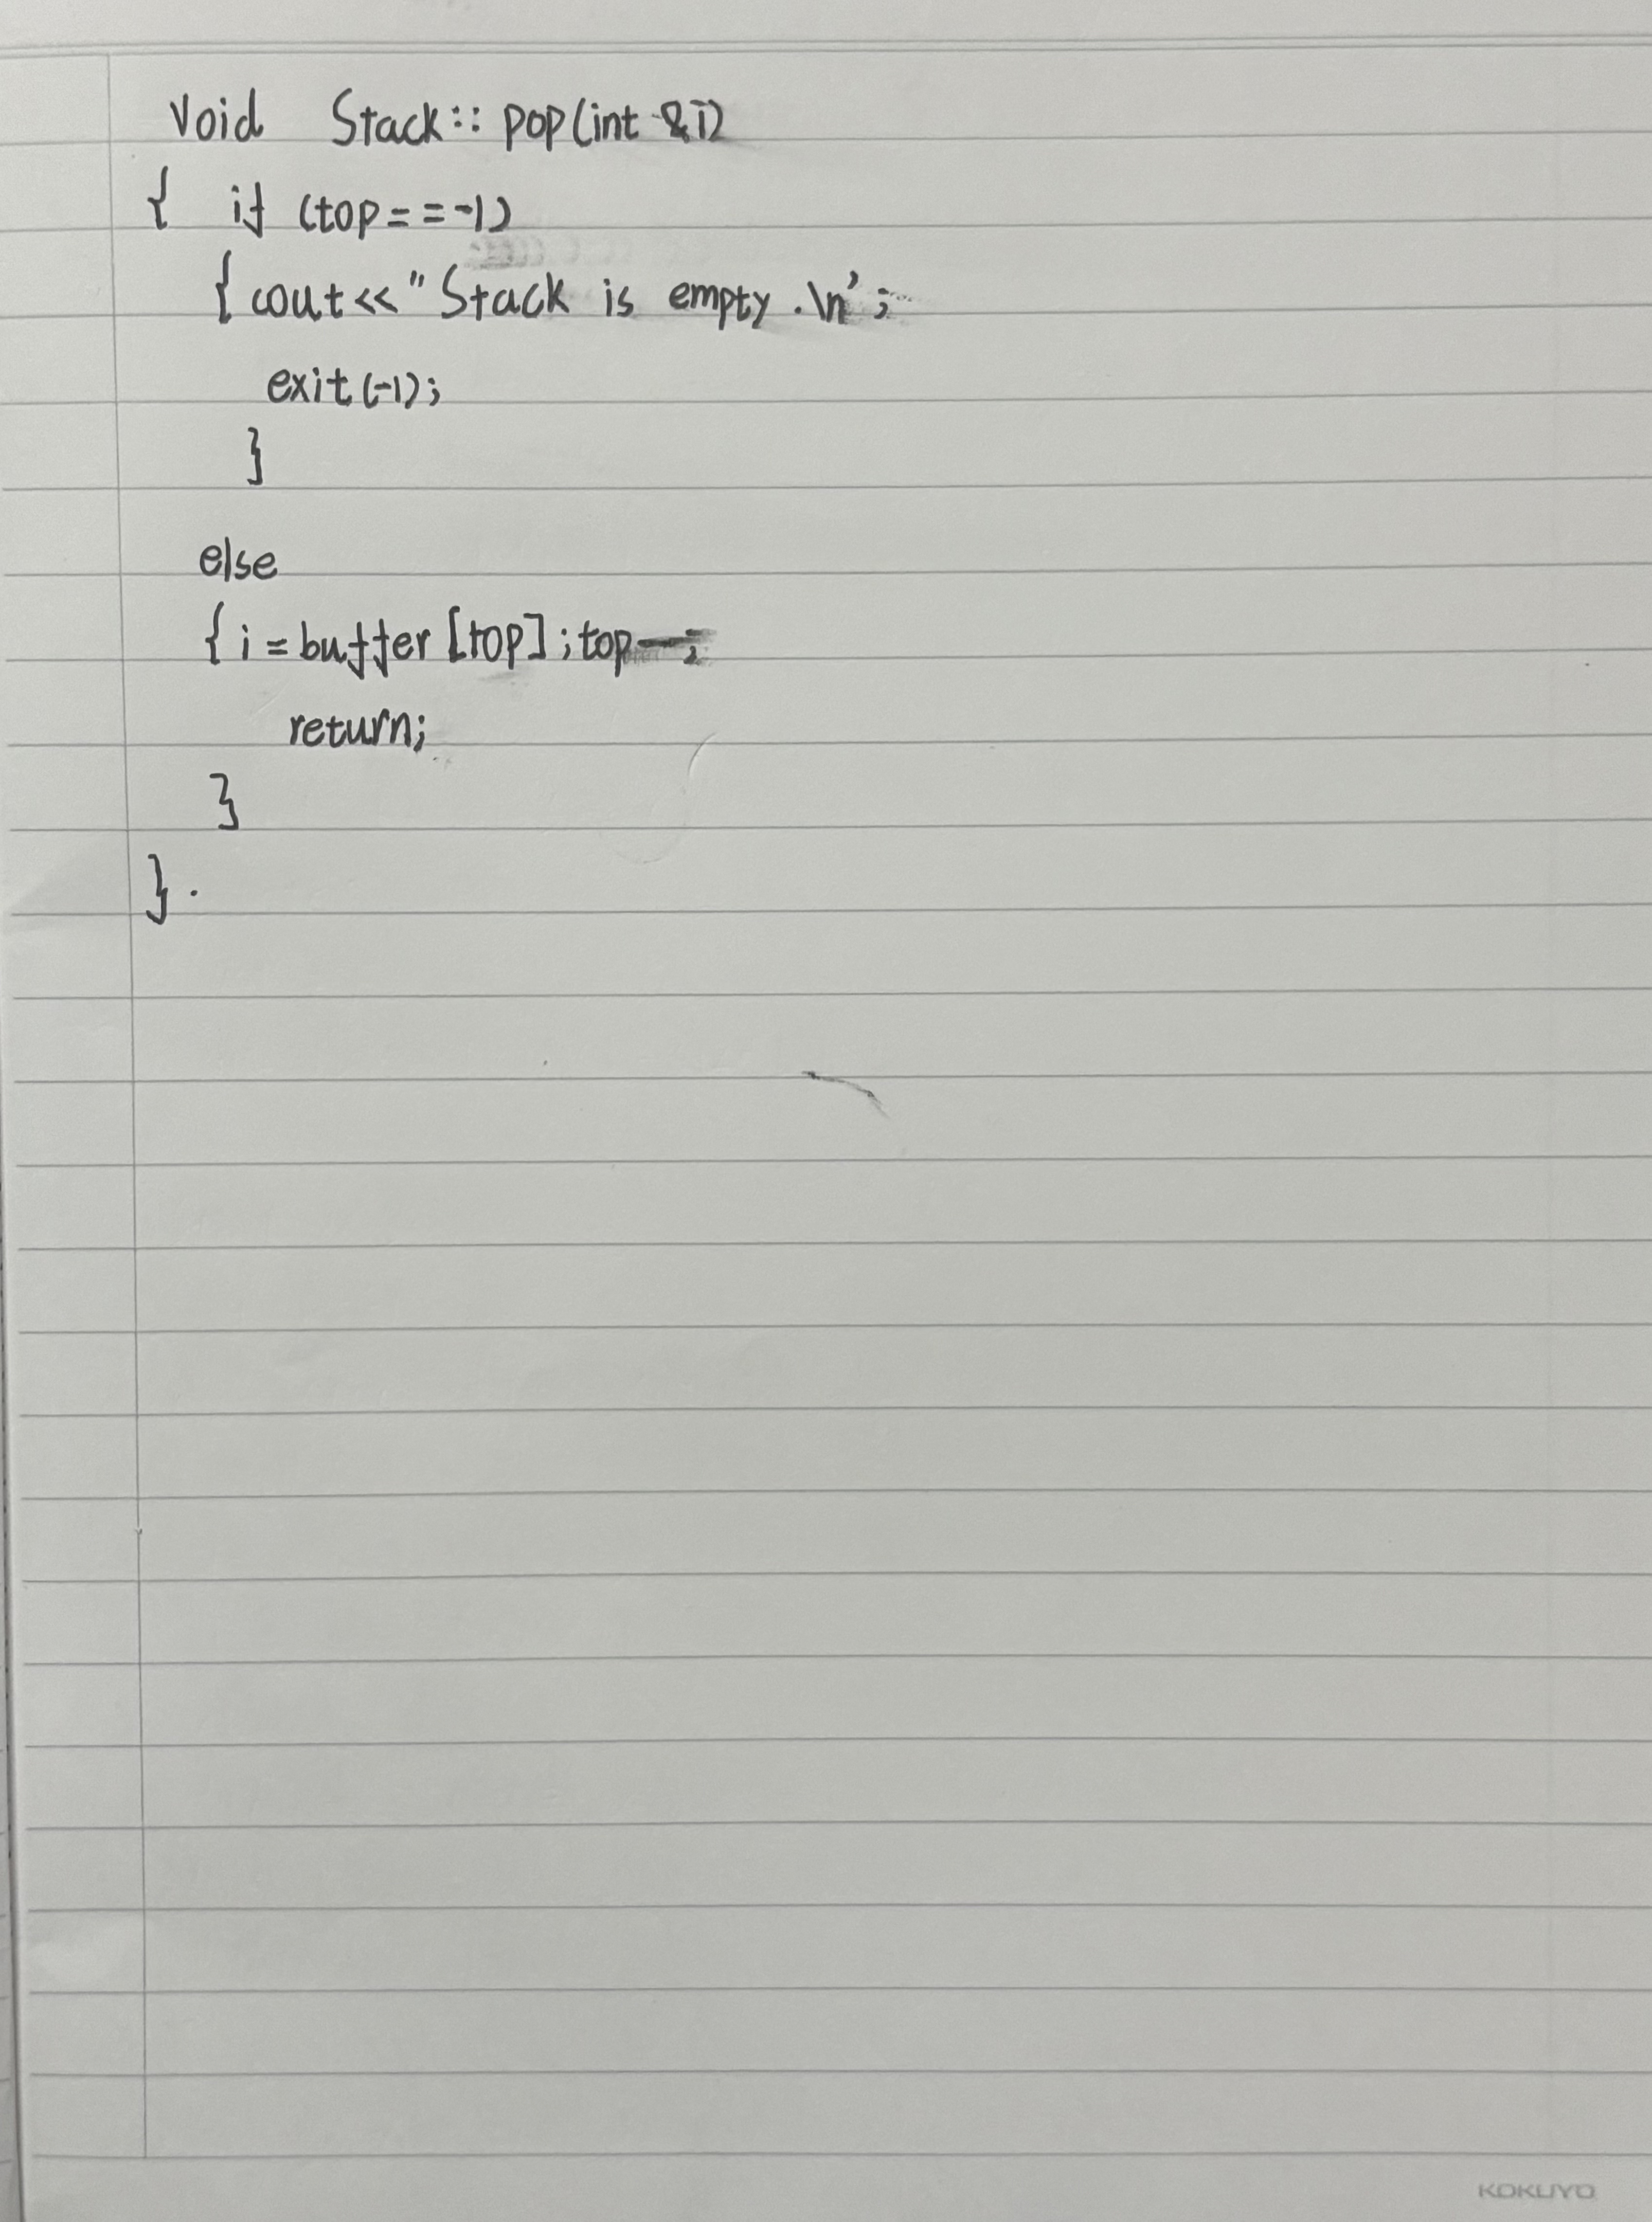 Void Stack::pop(int &i)
{ if (top==-1)
{ cout<<"Stack is empty.\n';
exit(-1);
}
else
{ i=buffer[top];top--;
return;
}
}.
KOKUYO